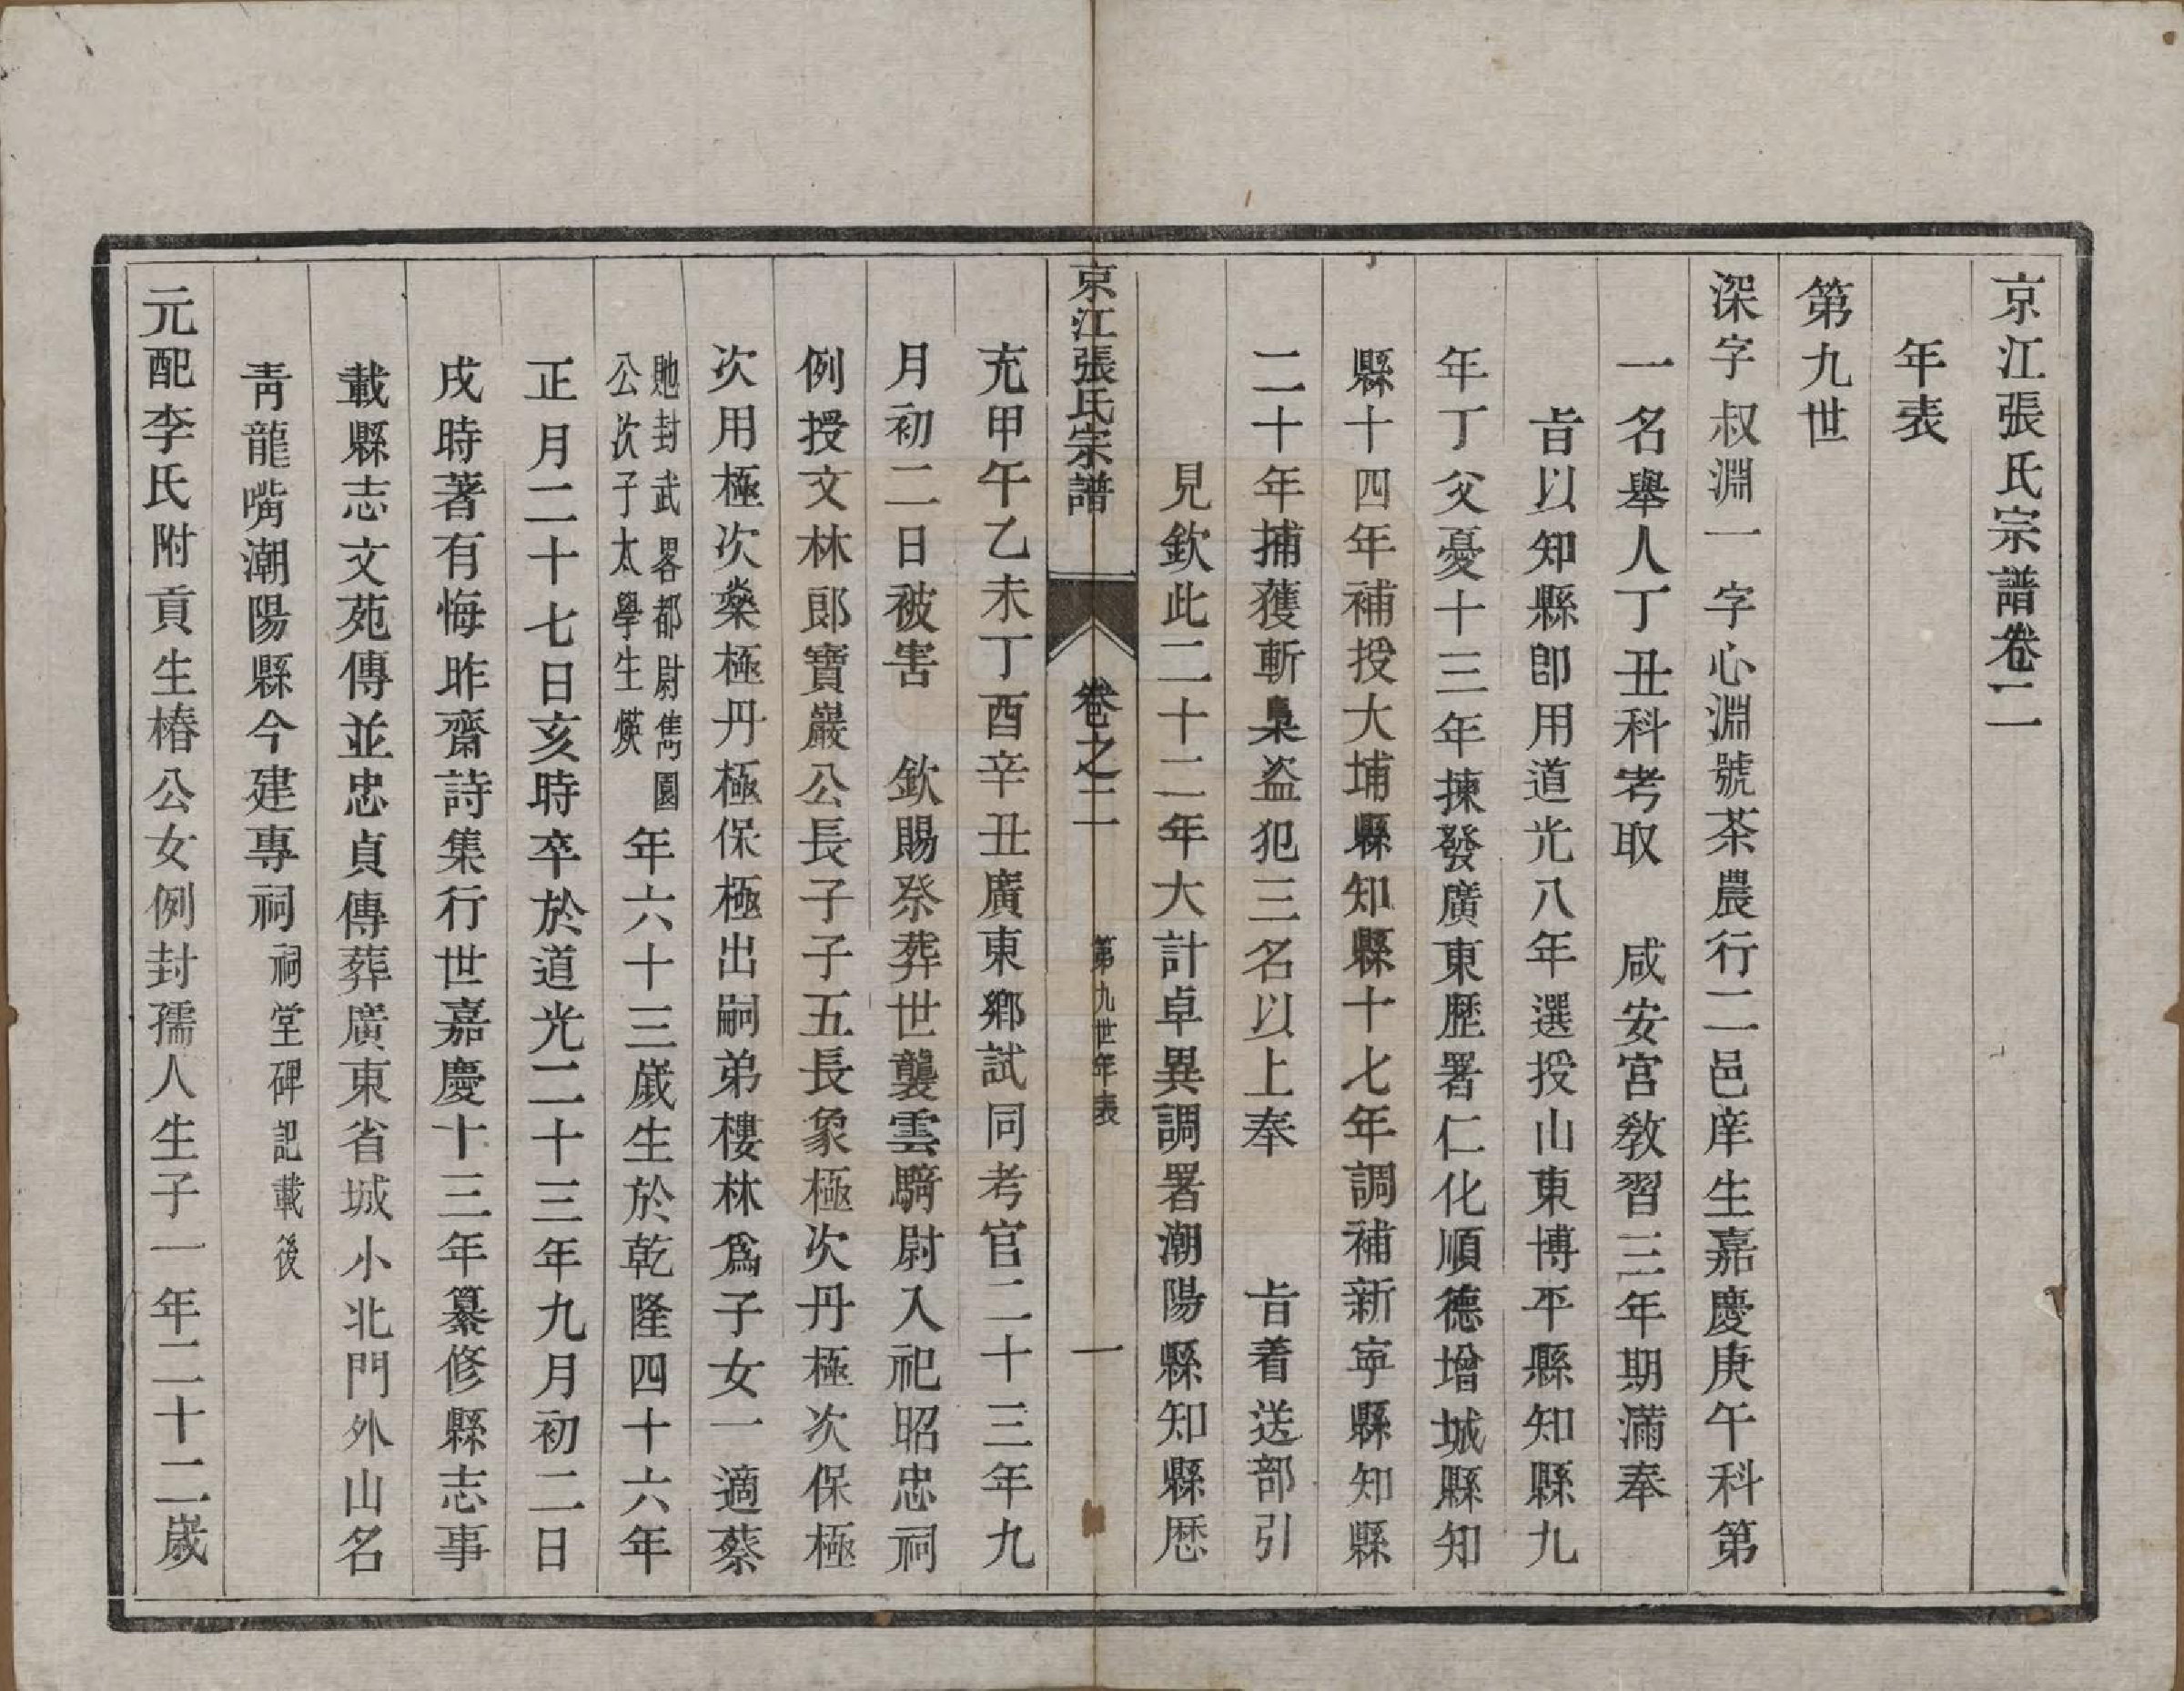 京江張氏宗譜卷二
年表
第九世
深字叔淵一字心淵號茶農行二邑庠生嘉慶庚午科第
一名舉人丁丑科考取　咸安宮教習三年期滿奉
旨以知縣卽用道光八年選授山東博平縣知縣九
年丁父憂十三年揀發廣東歷署仁化順德增城縣知
縣十四年補授大埔縣知縣十七年調補新寧縣知縣
二十年捕獲斬梟盜犯三名以上奉　　旨着送部引
見欽此二十二年大計卓異調署潮陽縣知縣歷
京江張氏宗譜　卷之二　第九世年表　一
充甲午乙未丁酉辛丑廣東鄉試同考官二十三年九
月初二日被害　欽賜祭葬世襲雲騎尉入祀昭忠祠
例授文林郎寶巖公長子子五長象極次丹極次保極
次用極次燊極丹極保極出嗣弟樓林爲子女一適蔡
貤封武畧都尉雋園
公次子太學生煐
年六十三歲生於乾隆四十六年
正月二十七日亥時卒於道光二十三年九月初二日
戌時著有悔昨齋詩集行世嘉慶十三年纂修縣志事
載縣志文苑傳並忠貞傳葬廣東省城小北門外山名
靑龍嘴潮陽縣今建專祠祠堂碑記載後
元配李氏附貢生椿公女例封孺人生子一年二十二歲